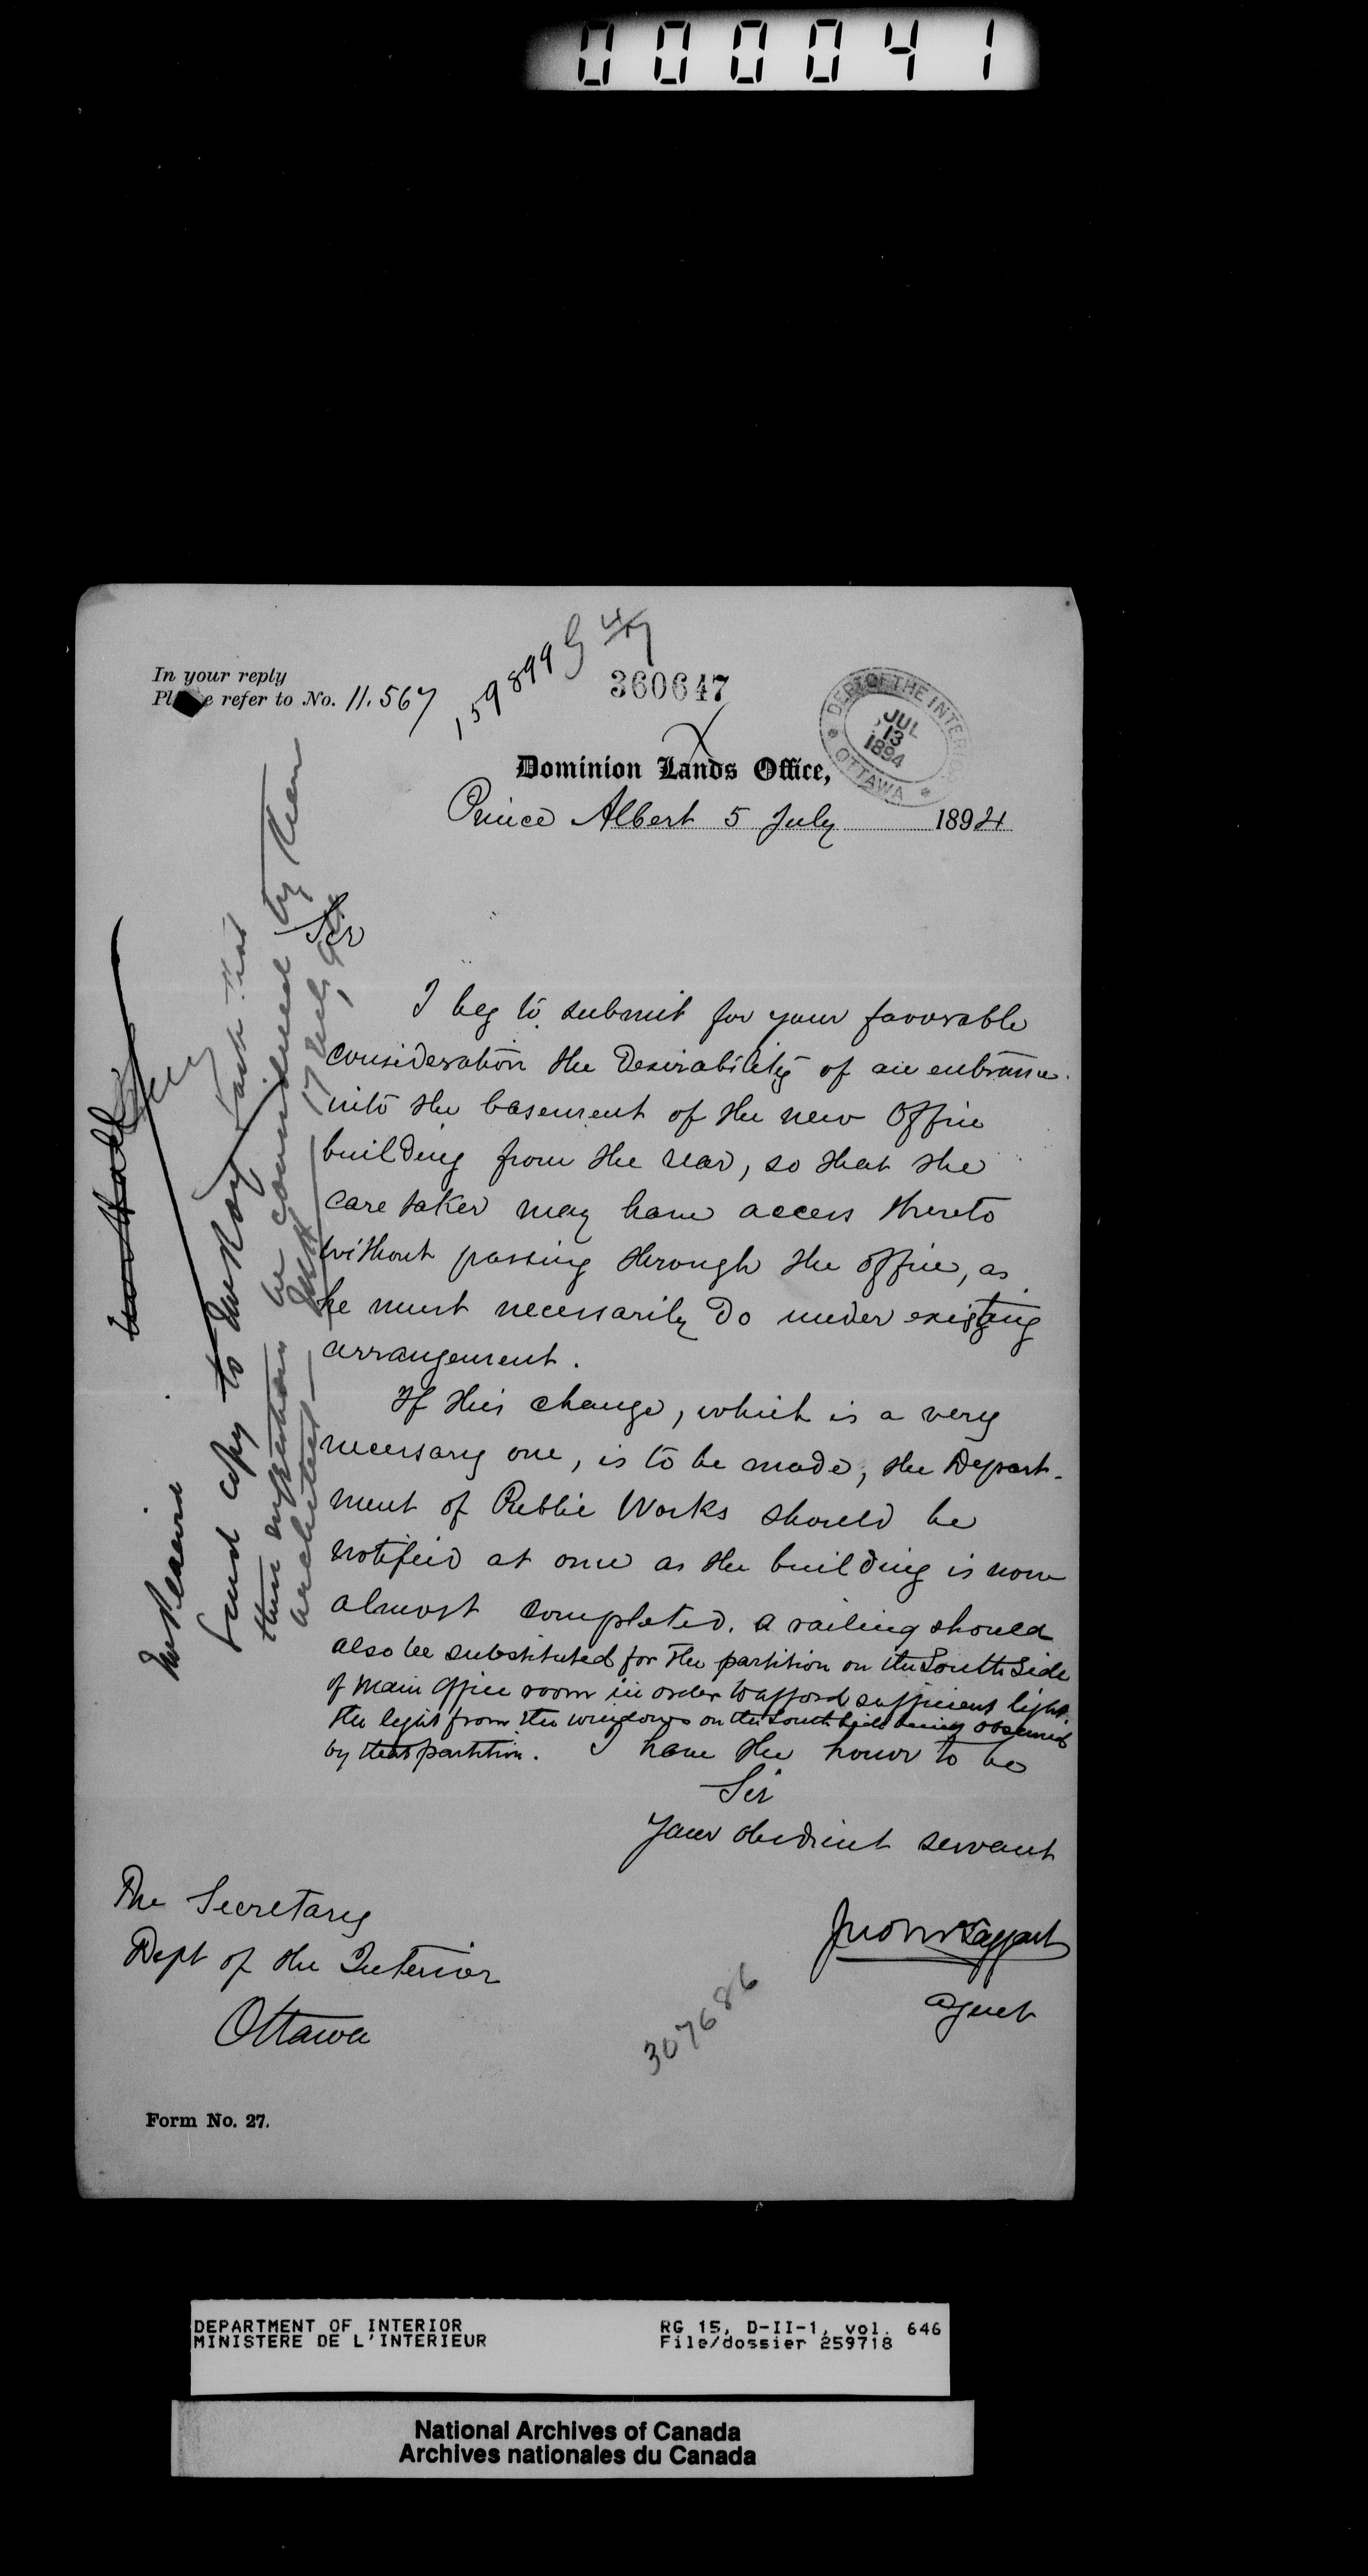 000041
In your reply
Please refer to No. 11.567
159899
360647
DEPT OF THE INTERIOR
JUL
13
1894
OTTAWA
Dominion Lands Office,
Prince Albert 5 July 1894
Sir
I beg to submit for your favorable
consideration the desirability of an entrance
into the basement of the new Office
building from the rear, so that the
care taker may have access thereto
without passing through the office, as
he must necessarily do under existing
arrangement.
If this change, which is a very
necessary one, is to be made, the Depart-
ment of Public Works should be
notified at once as the building is now
almost completed. a railing should
also be substituted for the partition on the South Side
of main office room in order to afford sufficient light
the light from the windows on the South Side being obscured
by that partition. I have the honor to be
Sir
Your obedient servant
Jno McTaggart
agent
The Secretary
Dept of the Interior
Ottawa
307686
Form No. 27.
send copy to Mr Roy & ask that
these suggestions be considered by their
architect
17 July 94
DEPARTMENT OF INTERIOR
MINISTERE DE L'INTERIEUR
RG 15, D-II-1, vol. 646
File/dossier 259718
National Archives of Canada
Archives nationales du Canada